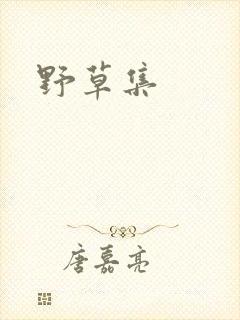 野草集
唐嘉亮